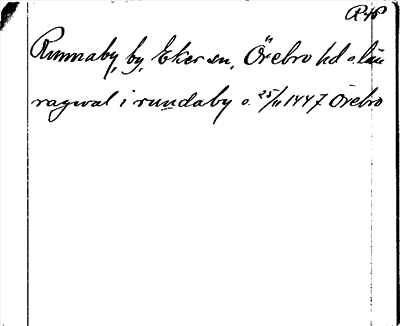 R48
Runnaby, by, Eker sn, Örebro hd o. län
ragwal i rundaby o. 25/11 1447 Örebro